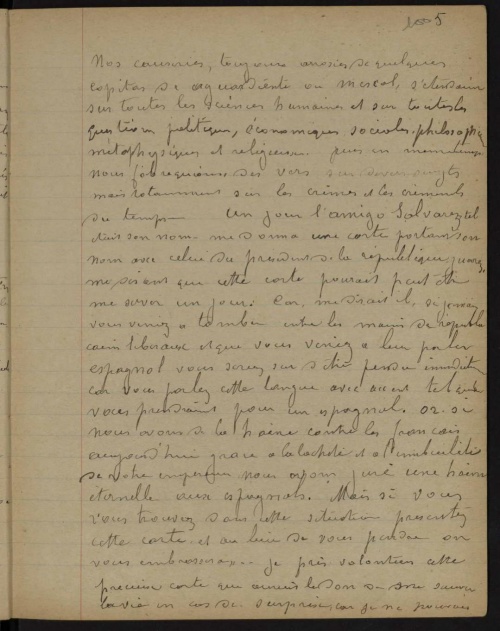 5
Nos causeries, toujours arrosées de quelques
copitas de aguardiente ou mescal, s'étendaient
sur toutes les sciences humaines et sur toutes les
questions politiques, économiques sociales, philosophiques
métaphysiques et religieuses. puis en
nous des vers sur divers sujets
mais notamment sur les crimes et les criminels
du temps. Un jour l'amigo Salvarez tel
était son nom me donna une carte portant son
nom avec celui du president de la republique, juarez,
me disant que cette carte pourait peut être
me servir un jour. Car me disait il, si jamais
vous veniez a tomber entre les mains de republi
cains liberaux et que vous veniez a leur parler
espagnol vous seriez sur d'être perdu
car vous parlez cette langue avec accent tel que
vous prendraint pour un espagnol. or si
nous avons de la haine contre les français
aujourd'hui grace a la lacheté et a l'imbecilité
de votre empereur nous avons juré une haine
eternelle aux espagnols. Mais si vous
vous trouvez dans cette situation presentez
cette carte et au lieu de vous pendre on
vous embrassera. je pris volontiers cette
precieuse carte que le don de me sauver
la vie en cas de surprise, car je ne pouvais